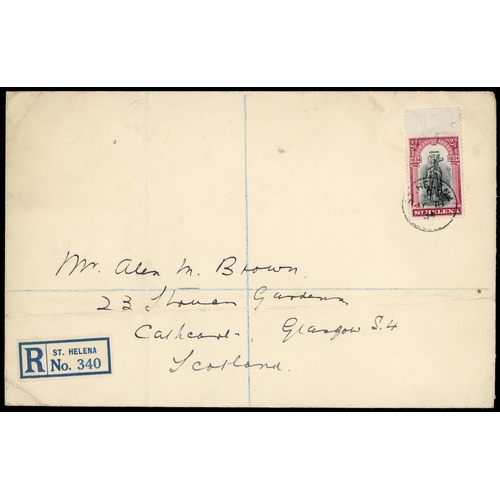 1834 1934
ST. HELENA
Mr. Alex M. Brown,
23 Gardens
Cathcart, Glasgow S.4
Scotland.
R ST. HELENA
No. 340